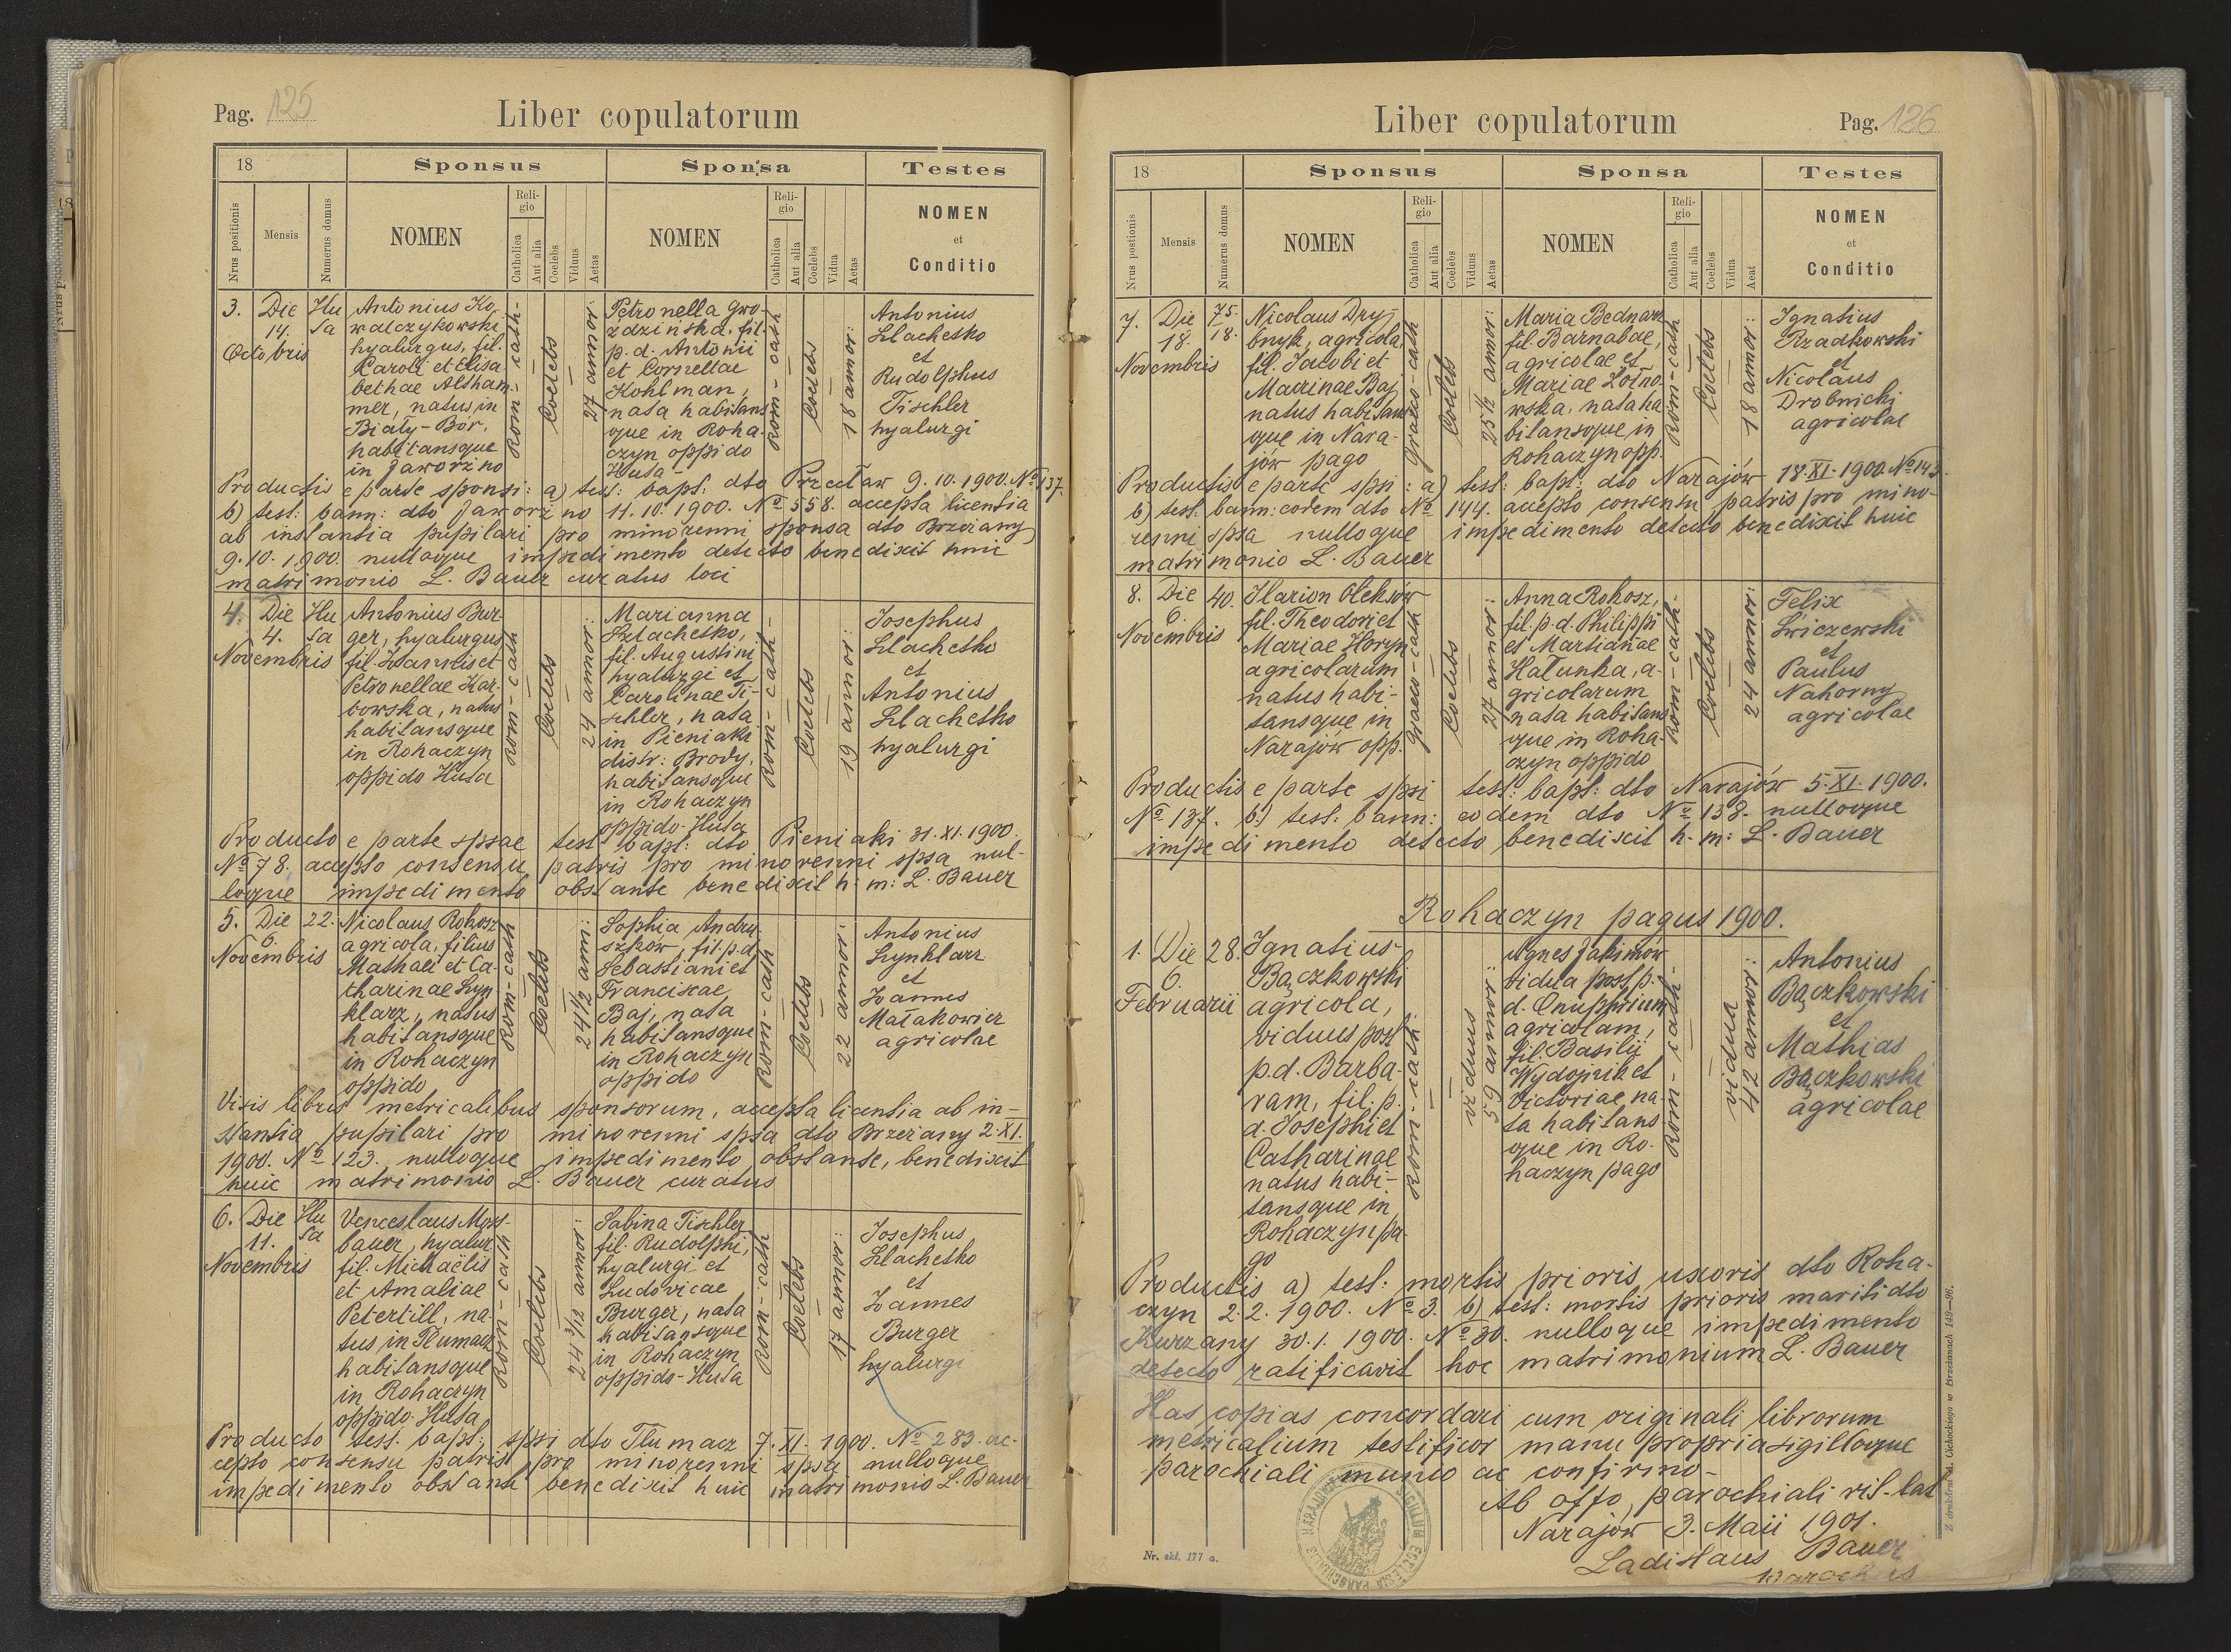 Pag. 125
Liber copulatorum
18
Sponsus
Sponsa
Testes
Nrus positionis
Mensis
Numerus domus
NOMEN
Religio
Catholica
Aut alia
Coelebs
Viduus
Aetas
NOMEN
Religio
Catholica
Aut alia
Coelebs
Vidua
Aetas
NOMEN
et
Conditio
3.
Die
14.
Octobris
Hu
ta
Antonius Ko
walczykowski
hyalurgus, fil.
Caroli et Elisa
bethae Altham
mer, natus in
Biały-Bór,
habitansque
in Jaworzno
Rom-cath-
Coelebs
27 annor:
Petronella Gwo
zdzińska, fil.
p. d. Antonii
et Cornellae
Kohlman,
nata habitans
que in Roha-
czyn oppido
Huta-
Rom-cath
Coelebs
18 annor:
Antonius
Szlachetko
et
Rudolphus
Tischler
hyalurgi
Productis e parte sponsi: a) test: bapt: dto Przecław 9.10.1900. No 137.
b) test: bann: dto Jaworzno 11.10.1900. No 558. accepta licentia
ab instantia pupilari pro minorenni sponsa dto Brzeżany
9.10.1900. nulloque impedimento detecto benedixit huic
matrimonio L. Bauer curatus loci
4.
Die
4.
Novembris
Hu
ta
Antonius Bur
ger, hyalurgus
fil. Joannis et
Petronellae Kar-
bowska, natus
habitansque
in Rohaczyn
oppido Huta
Rom-cath
Coelebs
24 annor:
Marianna
Szlachetko,
fil. Augustini
hyalurgi et
Carolinae Ti-
schler, nata
in Pieniaki
distr: Brody,
habitansque
in Rohaczyn
oppido-Huta
Rom-cath-
Coelebs
19 annor:
Josephus
Szlachetko
et
Antonius
Szlachetko
hyalurgi
Producto e parte spsae test bapt: dto Pieniaki 31.XI.1900.
No 78. accepto consensu patris pro minorenni spsa nul-
loque impedimento obstante benedixit h. m: L. Bauer
5.
Die
6.
Novembris
22.
Nicolaus Rokosz
agricola, filius
Mathaei et Ca-
tharinae Szyn
klarz, natus
habitansque
in Rohaczyn
oppido
Rom-cath
Coelebs
24 1/2 ann:
Sophia Andru
szkow, fil. p. d.
Sebastiani et
Franciscae
Baj, nata
habitansque
in Rohaczyn
oppido
Rom-cath
Coelebs
22 annor:
Antonius
Szynklarz
et
Joannes
Małakowicz
agricolae
Visis libris metricalibus sponsorum, accepta licentia ab in-
stantia pupilari pro minorenni spsa dto Brzeżany 2.XI.
1900. No 123. nulloque impedimento obstante, benedixit
huic matrimonio L. Bauer curatus
6.
Die
11.
Novembris
Hu
ta
Venceslaus Moss-
bauer, hyalur
fil. Michaëlis
et Amaliae
Petertill, na-
tus in Tłumacz
habitansque
in Rohaczyn
oppido-Huta
Rom-cath
Coelebs
24 3/12 annor:
Sabina Tischler
fil. Rudolphi,
hyalurgi et
Ludovicae
Burger, nata
habitansque
in Rohaczyn
oppido-Huta
Rom-cath
Coelebs
17 annor:
Josephus
Szlachetko
et
Joannes
Burger
hyalurgi
Producto test. bapt: spsi dto Tłumacz 7.XI.1900. No 283. ac-
cepto consensu patris pro minorenni spsa nulloque
impedimento obstante benedixit huic matrimonio L. Bauer
Liber copulatorum
Pag. 126
18
Sponsus
Sponsa
Testes
Nrus postionis
Mensis
Numerus domus
NOMEN
Religio
Catholica
Aut alia
Coelebs
Viduus
Aetas
NOMEN
Religio
Catholica
Aut alia
Coelebs
Vidua
Aeat
NOMEN
et
Conditio
7.
Die
18.
Novembris
75.
18.
Nicolaus Dry
bnyk, agricola
fil. Jacobi et
Marinae Baj
natus habitans
que in Nara-
jów pago
Graeco-cath
Coelebs
25 1/2 annor:
Maria Bednarz
fil. Barnabae,
agricolae et
Mariae Żółno-
wska, nata ha
bitansque in
Rohaczyn opp.
Rom-cath
Coelebs
18 annor:
Ignatius
Rzadkowski
et
Nicolaus
Drobnicki
agricolae
Productis e parte spsi: a) test: bapt: dto Narajów 18.XI.1900. No 143.
b) test. bann: eodem dto No 144. accepto consensu patris pro mino-
renni spsa nulloque impedimento detecto benedixit huic
matrimonio L. Bauer
8.
Die
6.
Novembris
40.
Ilarion Oleksów
fil. Theodori et
Mariae Horyn
agricolarum
natus habi-
tansque in
Narajów opp.
Graeco-cath
Coelebs
27 annor:
Anna Rokosz,
fil. p. d. Philippi
et Martianae
Hałunka, a-
gricolarum
nata habitans
que in Roha-
czyn oppido
Rom-cath-
Coelebs
24 annor:
Felix
Świczewski
et
Paulus
Nahorny
agricolae
Productis e parte spsi test: bapt: dto Narajów 5.XI.1900.
No 137. b) test: bann: eodem dto No 138. nulloque
impedimento detecto benedixit h. m: L. Bauer
Rohaczyn pagus 1900.
1.
Die
6.
Februarii
28.
Ignatius
Bączkowski
agricola,
viduus post
p.d. Barba-
ram, fil. p.
d. Josephi et
Catharinae
natus habi-
tansque in
Rohaczyn pa-
go
Rom-cath:
viduus
59 annor:
Agnes Jakimów
vidua post p.
d. Onuphrium
agricolam,
fil. Basilii
Wydojnik et
Victoriae, na-
ta habitans
que in Ro-
haczyn pago
Rom-cath-
vidua
42 annor:
Antonius
Bączkowski
et
Mathias
Bączkowski
agricolae
Productis a) test: mortis prioris uxoris dto Roha-
czyn 2.2.1900. No 3. b) test: mortis prioris mariti dto
Kurzany 30.1.1900. No 30. nulloque impedimento
detecto ratificavit hoc matrimonium L. Bauer
Has copias concordari cum originali librorum
metricalium testificor manu propria sigilloque
parochiali munio ac confirmo-
Ab offo, parochiali rit-lat
Narajów 3. Maii 1901.
Ladislaus Bauer
parochus
Nr. skł. 177 a.
Z drukarni M. Cichockiego w Brzeżanach 149—96.